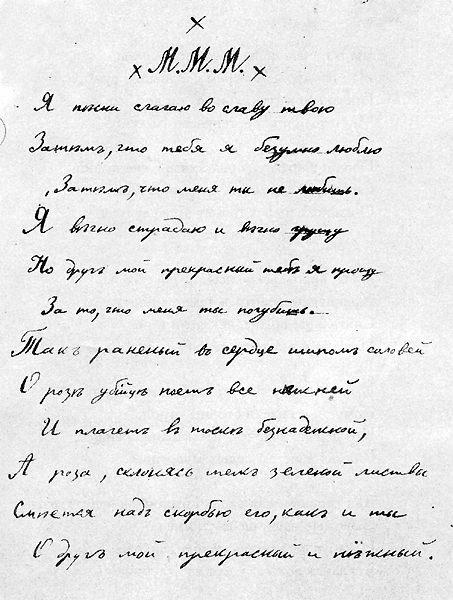 М.М.М.
Я пѣсни слагаю во славу твою
Затѣмъ, что тебя я безумно люблю
Затѣмъ, что меня ты не любишь.
Я вѣчно страдаю и вѣчно грущу
Но другъ мой прекрасный тебѣ я прощу
За то, что меня ты погубишь.
Такъ раненый въ сердце шипомъ соловей
О розѣ убійцѣ поетъ все нѣжней
И плачетъ въ тоскѣ безнадежной,
А роза, склонясь межъ зеленой листвы
Смѣется надъ скорбью его, какъ и ты
О другъ мой прекрасный и нѣжный.